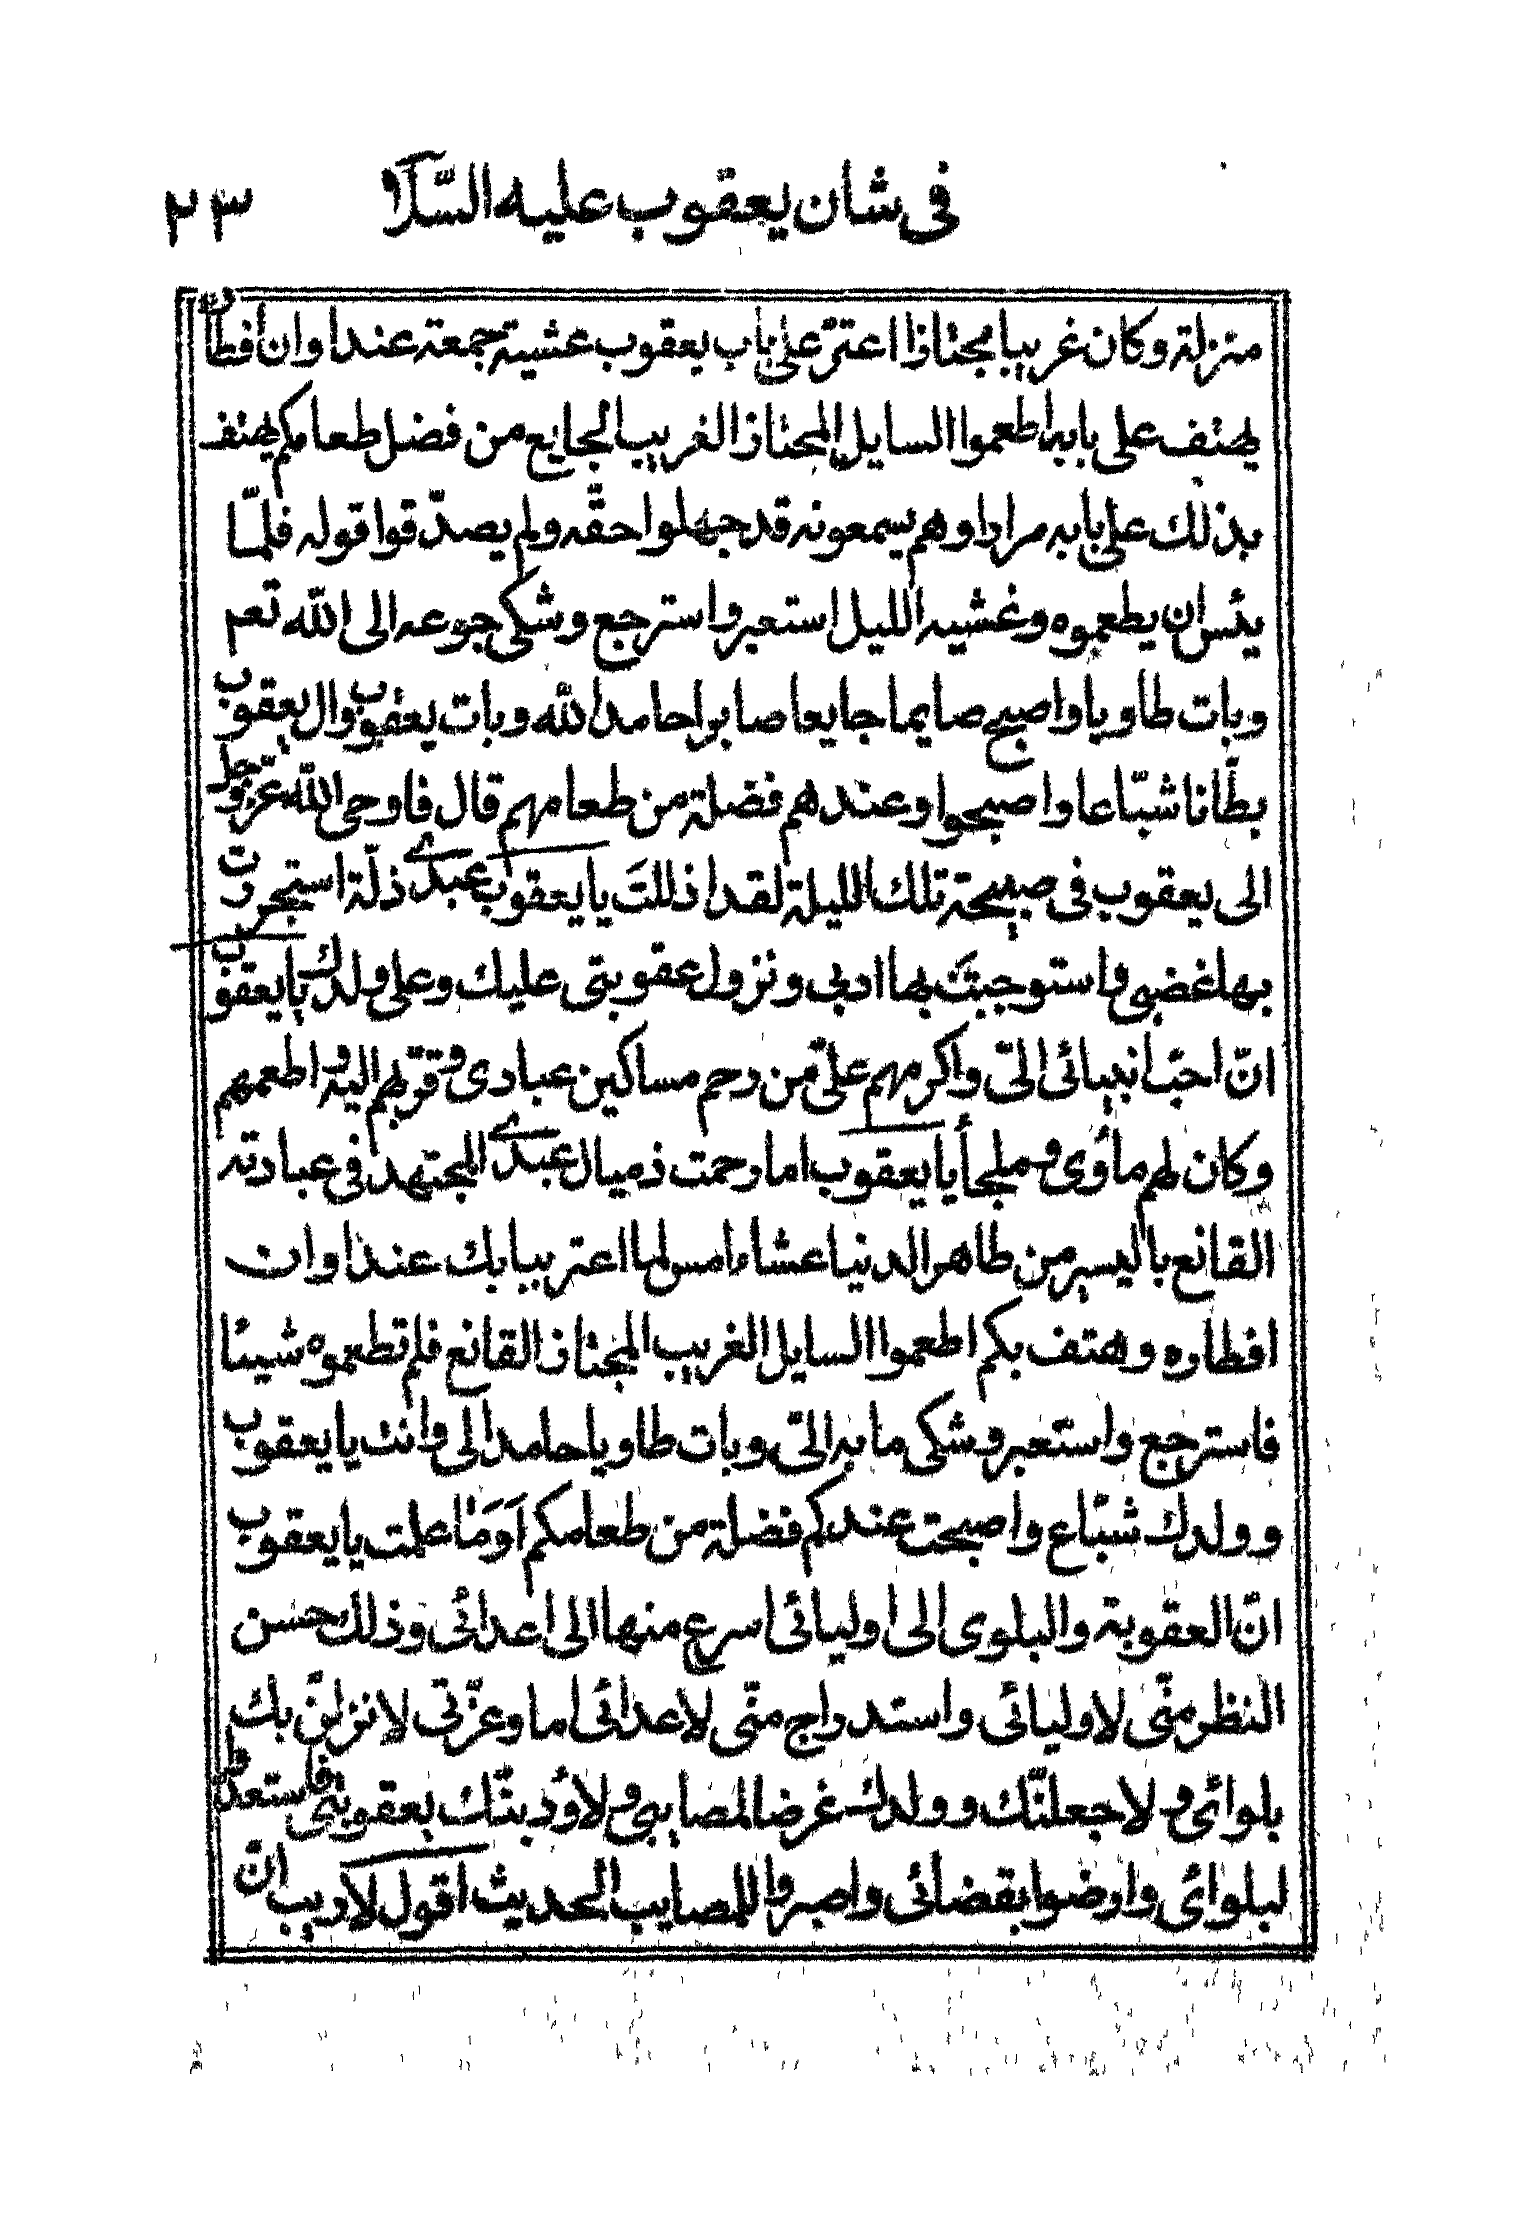 في شأن يعقوب عليه السّلام ٢٣
منزلة وكان غريبا مجتازا اعترّ على باب يعقوب عشية جمعة عند اوان افطاره
يهتف على بابه اطعموا السايل المجتاز الغريب الجايع من فضل طعامكم يهتف
بذلك على بابه مرارا وهم يسمعونه قد جهلوا حقّه ولم يصدّقوا قوله فلمّا
يئس ان يطعموه وغشيه الليل استعبر واسترجع وشكى جوعه الى الله تعم
وبات طاويا واصبح صايما جايعا صابرا حامدا لله وبات يعقوب وال يعقوب
بطّانا شبّاعا واصبحوا وعندهم فضلة من طعامهم قال فاوحى الله عزّ وجل
الى يعقوب في صبيحة تلك الليلة لقد اذللتَ يا يعقوب عبدى ذلّة استجررت
بها غضبى واستوجبتَ بها ادبى ونزول عقوبتى عليك وعلى ولدك يا يعقوب
انّ احبّ انبيائى الىّ واكرمهم علىّ من رحم مساكين عبادى وقرّبهم اليه واطعمهم
وكان لهم مأوى وملجأ يا يعقوب اما رحمت ذميال عبدى المجتهد في عبادته
القانع باليسير من ظاهر الدنيا عشاء امس لما اعتر ببابك عند اوان
افطاره وهتف بكم اطعموا السايل الغريب المجتاز القانع فلم تطعموه شيئا
فاسترجع واستعبر وشكى ما به الىّ وبات طاويا حامدا لى وانت يا يعقوب
وولدك شبّاع واصبحت عندكم فضلة من طعامكم اَوَمَا علمت يا يعقوب
انّ العقوبة والبلوى الى اوليائى اسرع منها الى اعدائى وذلك حسن
النظر منّى لاوليائى واستدراج منّى لاعدائى اما وعزّتى لانزلنّ بك
بلوائى ولاجعلنّك وولدك غرضا لمصايبى ولاؤدبنّك بعقوبتى فاستعدّوا
لبلوائى وارضوا بقضائى واصبروا للمصايب الحديث اقول لا ريب انّ